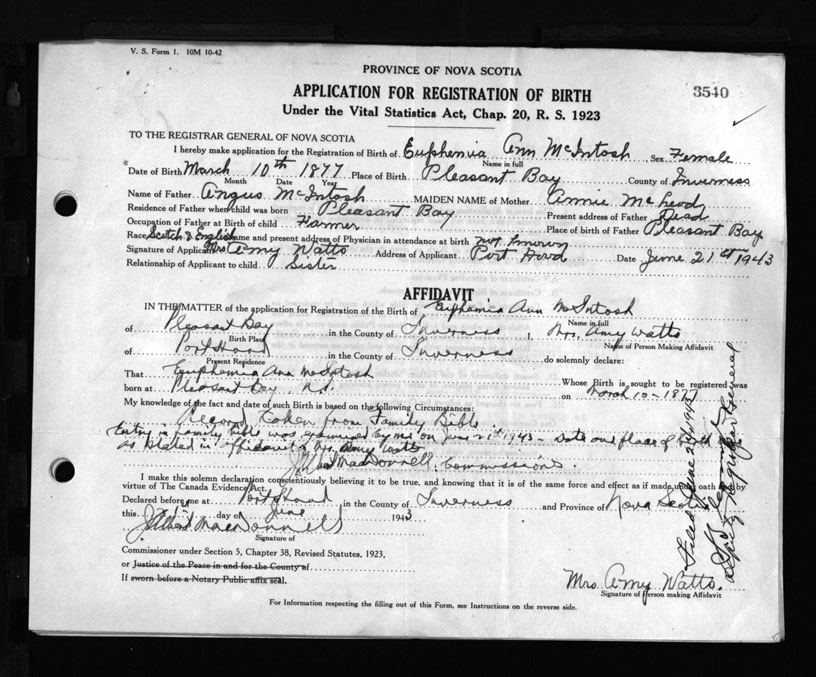 V. S. Form 1. 10M 10-42
PROVINCE OF NOVA SCOTIA
APPLICATION FOR REGISTRATION OF BIRTH
3540
Under the Vital Statistics Act, Chap. 20, R. S. 1923
TO THE REGISTRAR GENERAL OF NOVA SCOTIA
I hereby make application for the Registration of Birth of Euphemia Ann McIntosh Sex Female
Name in full
Date of Birth March 10th 1877 Place of Birth Pleasant Bay County of Inverness
Month Date Year
Name of Father Angus McIntosh MAIDEN NAME of Mother Annie McLeod
Residence of Father when child was born Pleasant Bay Present address of Father Dead
Occupation of Father at Birth of child Farmer Place of birth of Father Pleasant Bay
Race Scotch & English Name and present address of Physician in attendance at birth not known
Signature of Applicant Mrs Amy Watts Address of Applicant Port Hood Date June 21st 1943
Relationship of Applicant to child Sister
AFFIDAVIT
IN THE MATTER of the application for Registration of the Birth of Euphemica Ann McIntosh
Name in full
of Pleasat Bay in the County of Inverness I, Mrs. Amy Watts
Birth Place Name of Person Making Affidavit
of Port Hood in the County of Inverness do solemnly declare:
Present Residence
That Euphemia Ann McIntosh Whose Birth is sought to be registered was
born at Pleasant Bay, N.S. on March 10-1877
My knowledge of the fact and date of such Birth is based on the following Circumstances:
Record taken from Family Bible
Entry in family bible was examined by me on June 21st 1943 - Date and place of birth
as stated in affidavit of Mrs. Amy Watts
MacDonnell, Commissioner.
I make this solemn declaration conscientiously believing it to be true, and knowing that it is of the same force and effect as if made under oath and by
virtue of The Canada Evidence Act.
Declared before me at Port Hood in the County of Inverness and Province of Nova Scotia
this day of June 1943
MacDonnell
Signature of
Commissioner under Section 5, Chapter 38, Revised Statutes, 1923,
or Justice of the Peace in and for the County of
If sworn before a Notary Public affix seal.
Mrs. Amy Watts.
Signature of Person making Affidavit
For Information respecting the filling out of this Form, see Instructions on the reverse side.
Filed June
Deputy Registrar General